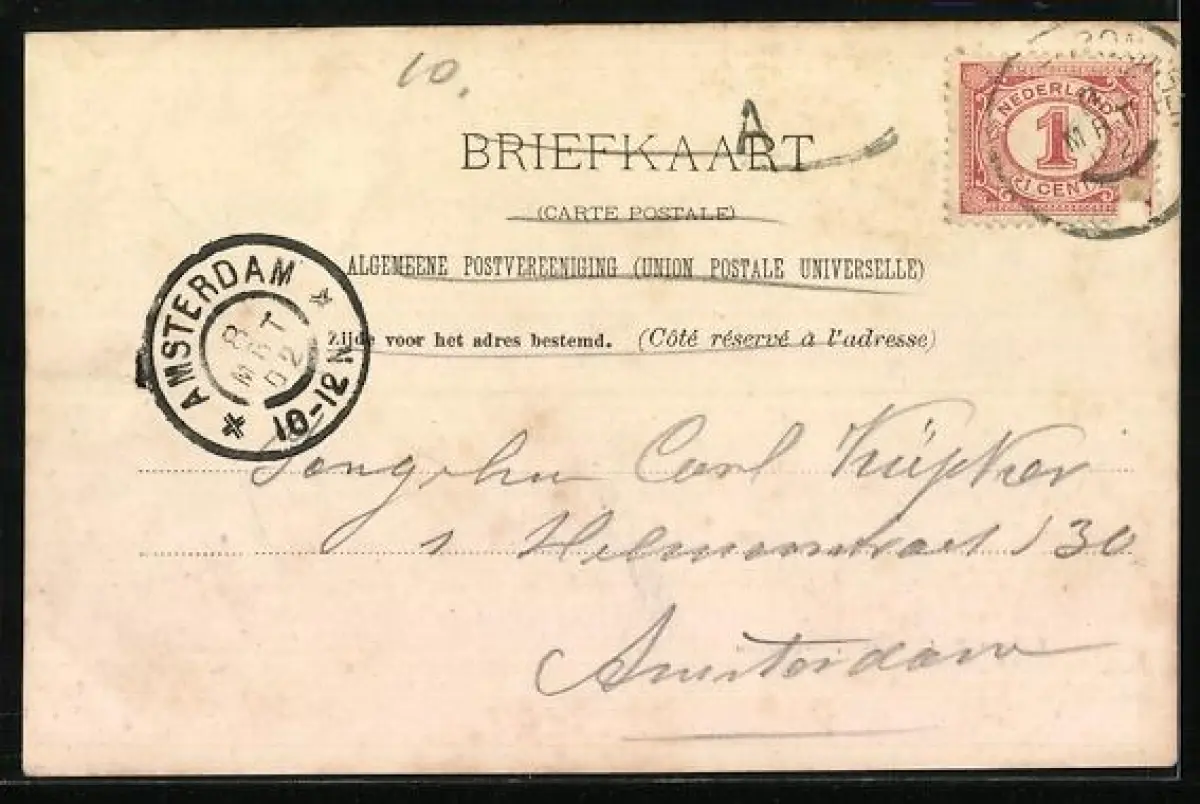 10.
A
BRIEFKAART
(CARTE POSTALE)
ALGEMEENE POSTVEREENIGING (UNION POSTALE UNIVERSELLE)
Zijde voor het adres bestemd. (Côté réservé à l'adresse)
NEDERLAND
1
CENT
MRT
AMSTERDAM
8
MRT
02
10-12 N
Carl Küpker
130
Amsterdam